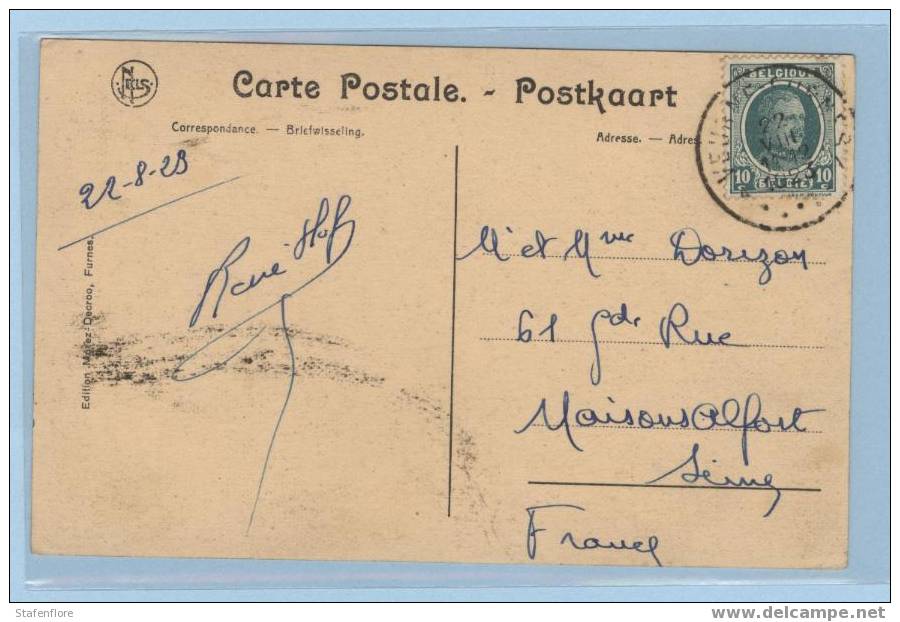 NELS
Carte Postale. - Postkaart
Correspondance. — Briefwisseling.
Adresse. — Adres.
BELGIQUE
10 BELGIË 10
22-8-23
M et Mme Dorizon
61 Gde Rue
Maisons Alfort
Seine
France
Edition Morez-Decroo, Furnes.
Stafenflore
www.delcampe.net